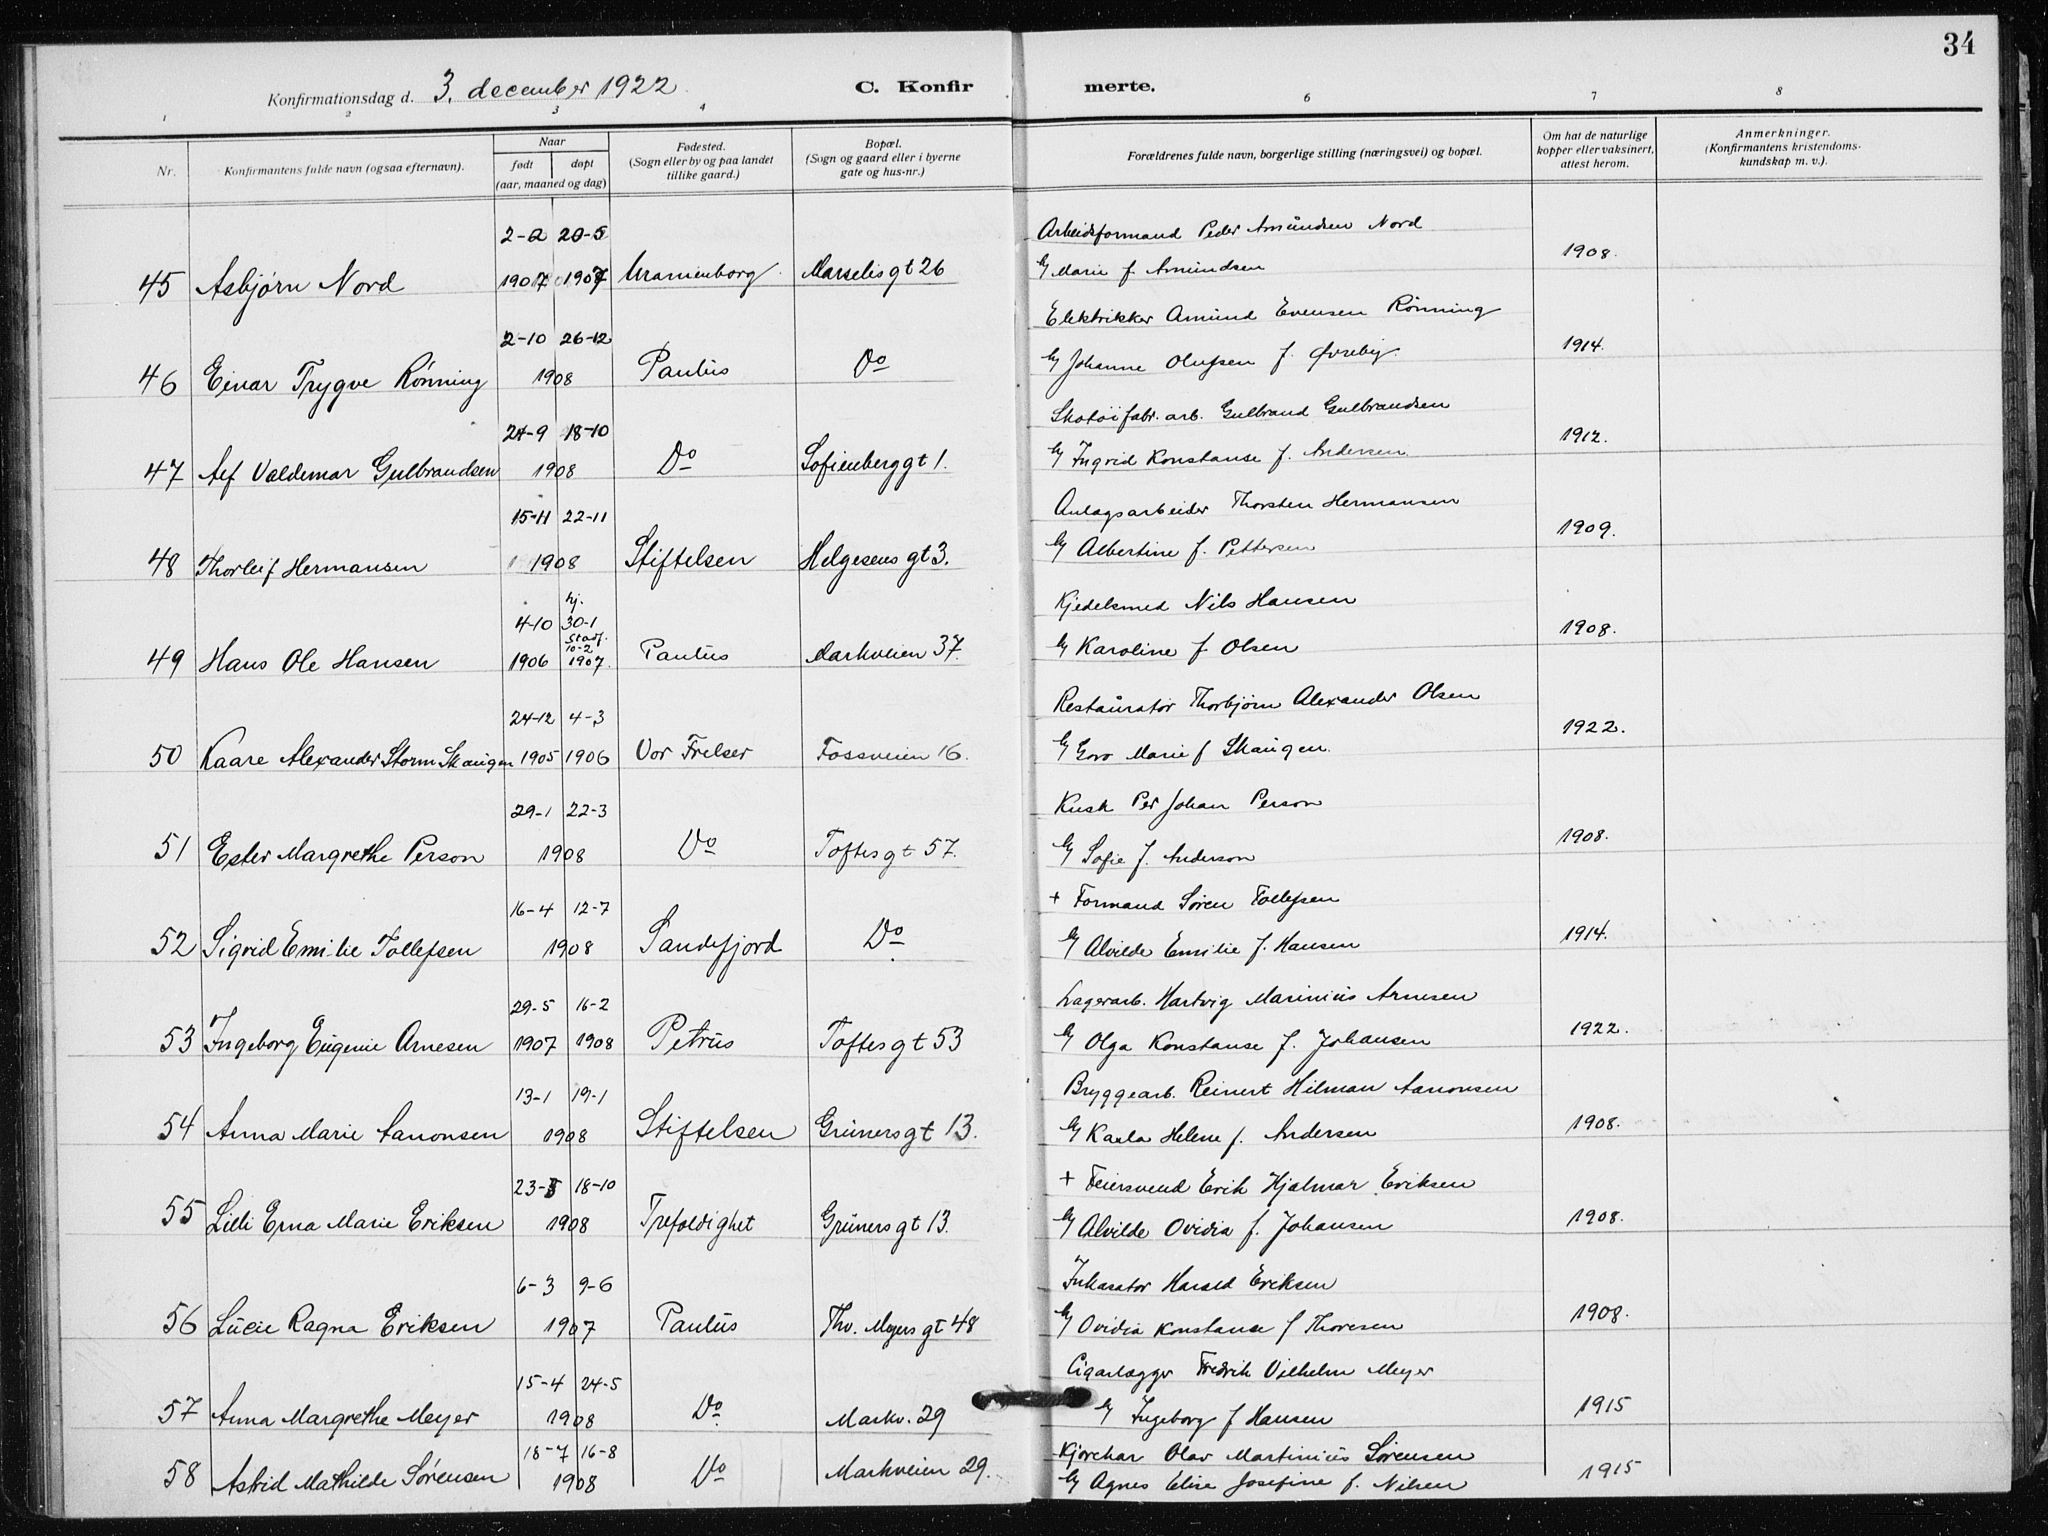 34
Konfirmationsdag d. 3. december 1922. C. Konfirmerte.
1 2 3 4 6 7 8
Nr. Konfirmantens fulde navn (ogsaa efternavn). Naar født døpt (aar, maaned og dag) Fødested. (Sogn eller by og paa landet tillike gaard.) Bopæl. (Sogn og gaard eller i byerne gate og hus-nr.) Forældrenes fulde navn, borgerlige stilling (næringsvei) og bopæl. Om hat de naturlige kopper eller vaksinert, attest herom. Anmerkninger. (Konfirmantens kristendomskundskap m. v.).
2-2 20-5 Arbeidsformand Peder Amundsen Nord
45 Asbjørn Nord 1907 1907 Uranienborg. Marselisgt 26 Marie f. Amundsen 1908.
2-10 26-12 Elektrikker Amund Evensen Rønning
46 Einar Trygve Rønning 1908 Paulus Do Johanne Olufsen f. Øvreby. 1914.
24-9 18-10 Skotøifabr. arb. Gulbrand Gulbrandsen
47 Alf Valdemar Gulbrandsen 1908 Do Sofienberggt 1. Ingrid Konstanse f. Andersen 1912.
15-11 22-11 Anlagsarbeider Thorsten Hermansen
48 Thorleif Hermansen 1908 Stiftelsen Helgesens gt 3. Albertine f. Pettersen 1909.
4-10 hj. 30-1 stadf. 10-2 Kjedelsmed Nils Hansen
49 Hans Ole Hansen 1906 1907. Paulus Markveien 37. Karoline f Olsen 1908.
24-12 4-3 Restauratør Thorbjørn Alexander Olsen
50 Kaare Alexander Storm Skaugen 1905 1906 Vor Frelser Fossveien 16. Goro Marie f Skaugen. 1922.
29-1 22-3 Kusk Per Johan Person
51 Ester Margrethe Person 1908 Do Toftesgt 57. Sofie f. Anderson 1908.
16-4 12-7 + Formand Søren Tollefsen
52 Sigrid Emilie Tollefsen 1908 Sandefjord Do Alvilde Emilie f. Hansen 1914.
29-5 16-2 Lagerarb. Hartvig Marinius Arnesen
53 Ingeborg Eugenie Arnesen 1907 1908 Petrus Toftesgt 53 Olga Konstanse f. Johansen 1922.
13-1 19-1 Bryggearb. Reinert Hilman Aanonsen
54 Anna Marie Aanonsen 1908 Stiftelsen Grünersgt 13. Karla Helene f. Andersen 1908.
23-5 18-10 + Feiersvend Erik Hjalmar Eriksen
55 Lilli Erna Marie Eriksen 1908 Trefoldighet Grünersgt 13. Alvilde Ovidia f. Johansen 1908.
6-3 9-6 Inkasator Harald Eriksen
56 Lucie Ragna Eriksen 1907 Paulus Thv. Meyersgt 48 Ovidia Konstanse f Thoresen 1908.
15-4 24-5 Cigarlægger Fredrik Vilhelm Meyer
57 Anna Margrethe Meyer 1908 Do Markv. 29 Ingeborg f Hansen 1915
18-7 16-8 Kjørekar Olav Martinius Sørensen
58 Astrid Mathilde Sørensen 1908 Do Markveien 29. Agnes Elise Josefine f. Nilsen 1915